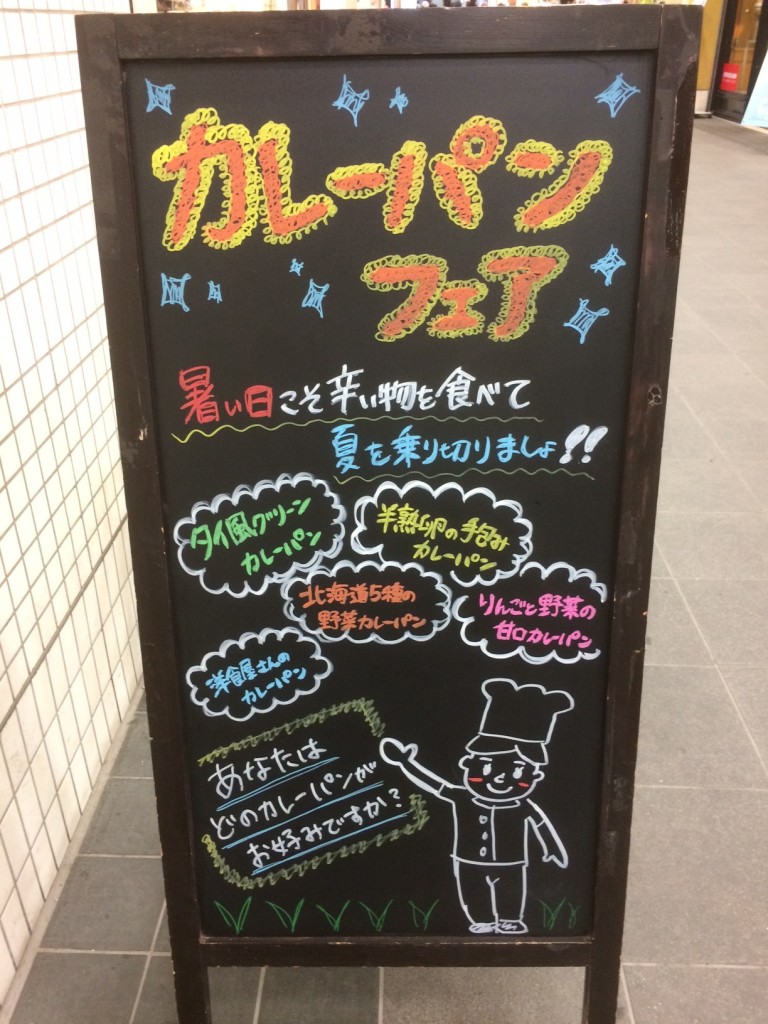 カレーパン
フェア
暑い日こそ辛い物を食べて
夏を乗り切りましょ!!
タイ風グリーン
カレーパン
半熟卵の手包み
カレーパン
北海道5種の
野菜カレーパン
りんごと野菜の
甘口カレーパン
洋食屋さんの
カレーパン
あなたは
どのカレーパンが
お好みですか?